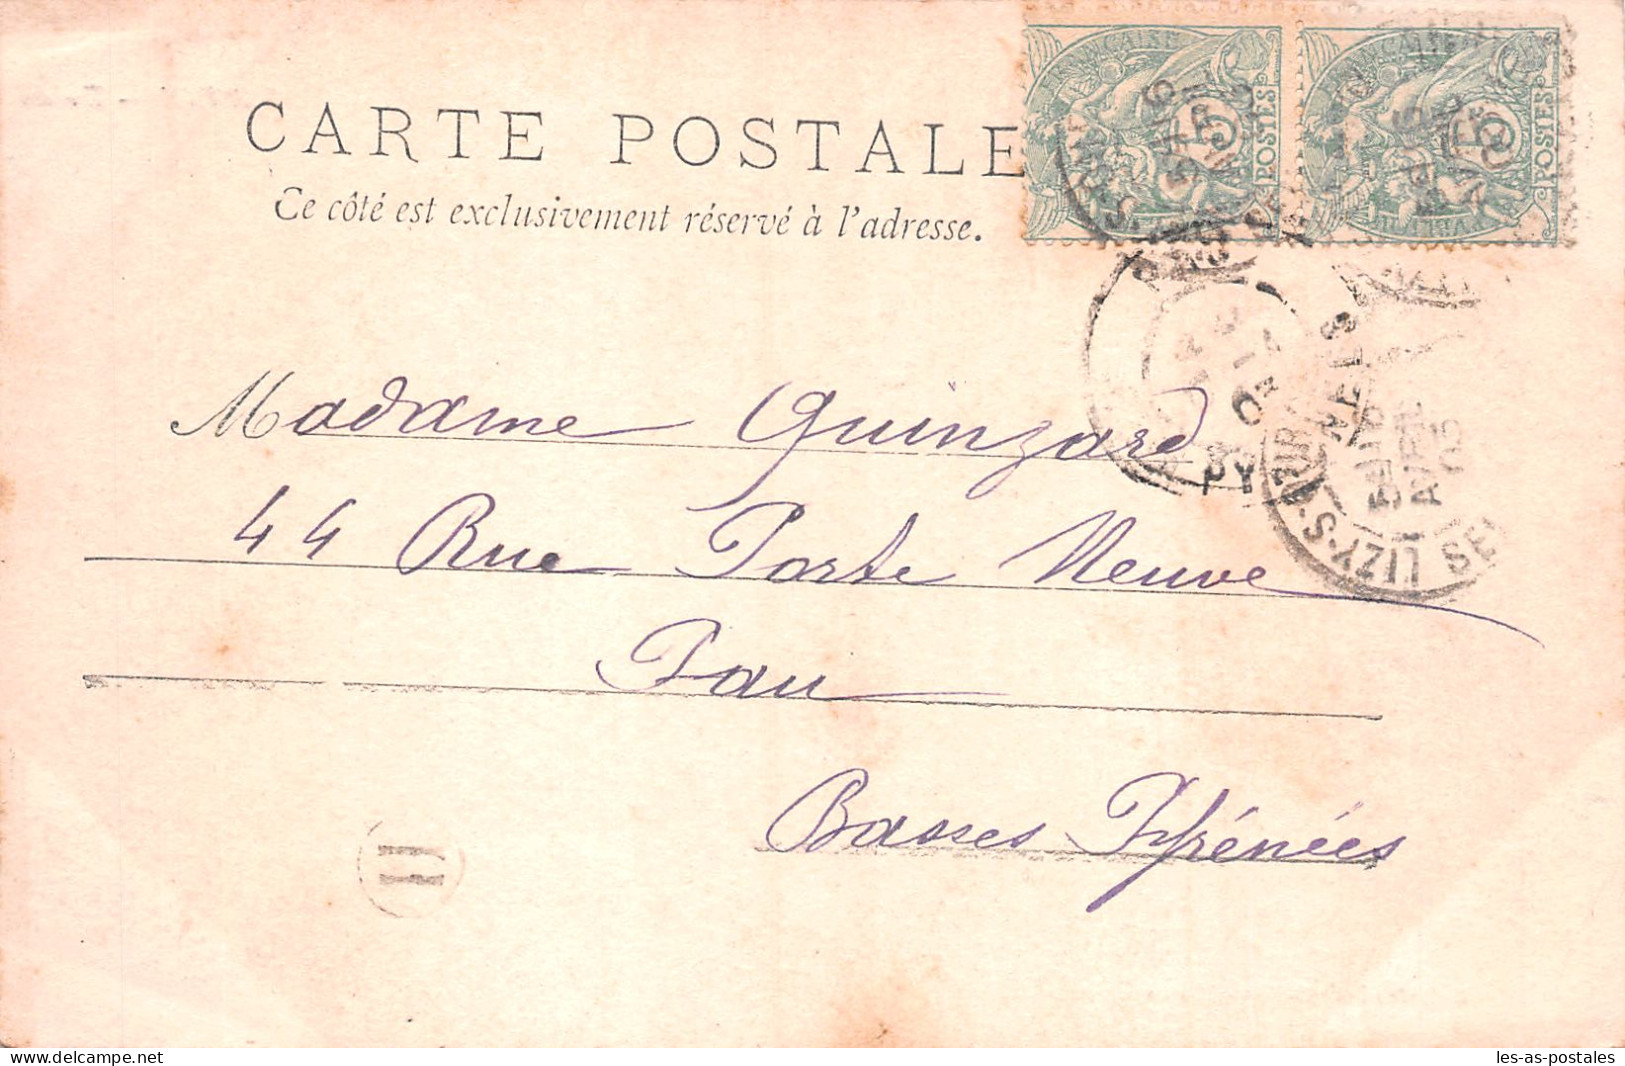 CARTE POSTALE
Ce côté est exclusivement réservé à l'adresse.
FRANÇAISE
5
POSTES
FRANÇAISE
5
POSTES
PY
LIZY-S-
Madame Guinzard
44 Rue Porte Neuve
Pau
Basses Pyrénées
www.delcampe.net
les-as-postales